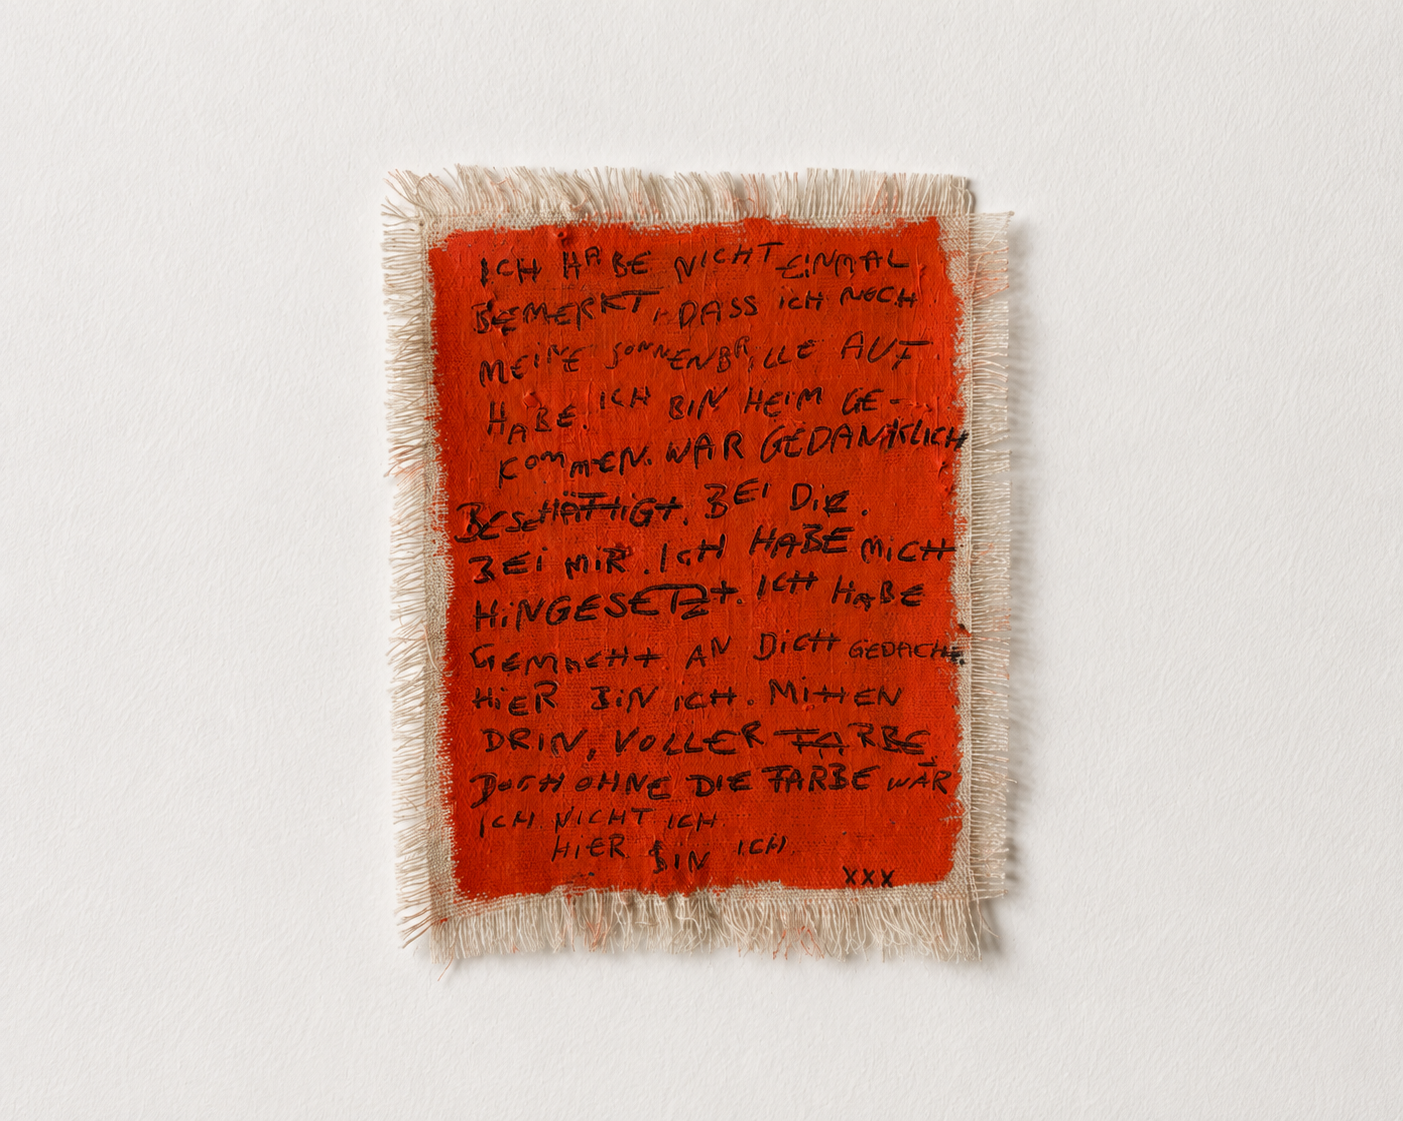 ICH HABE NICHT EINMAL
BEMERKT, DASS ICH NOCH
MEINE SONNENBRILLE AUF
HABE. ICH BIN HEIM GE-
KOMMEN. WAR GEDANKLICH
BESCHÄFTIGT. BEI DIR.
BEI MIR. ICH HABE MICH
HINGESETZT. ICH HABE
GEMACHT AN DICH GEDACHT.
HIER BIN ICH. MITTEN
DRIN, VOLLER FARBE.
DOCH OHNE DIE FARBE WÄR
ICH NICHT ICH.
HIER BIN ICH
XXX